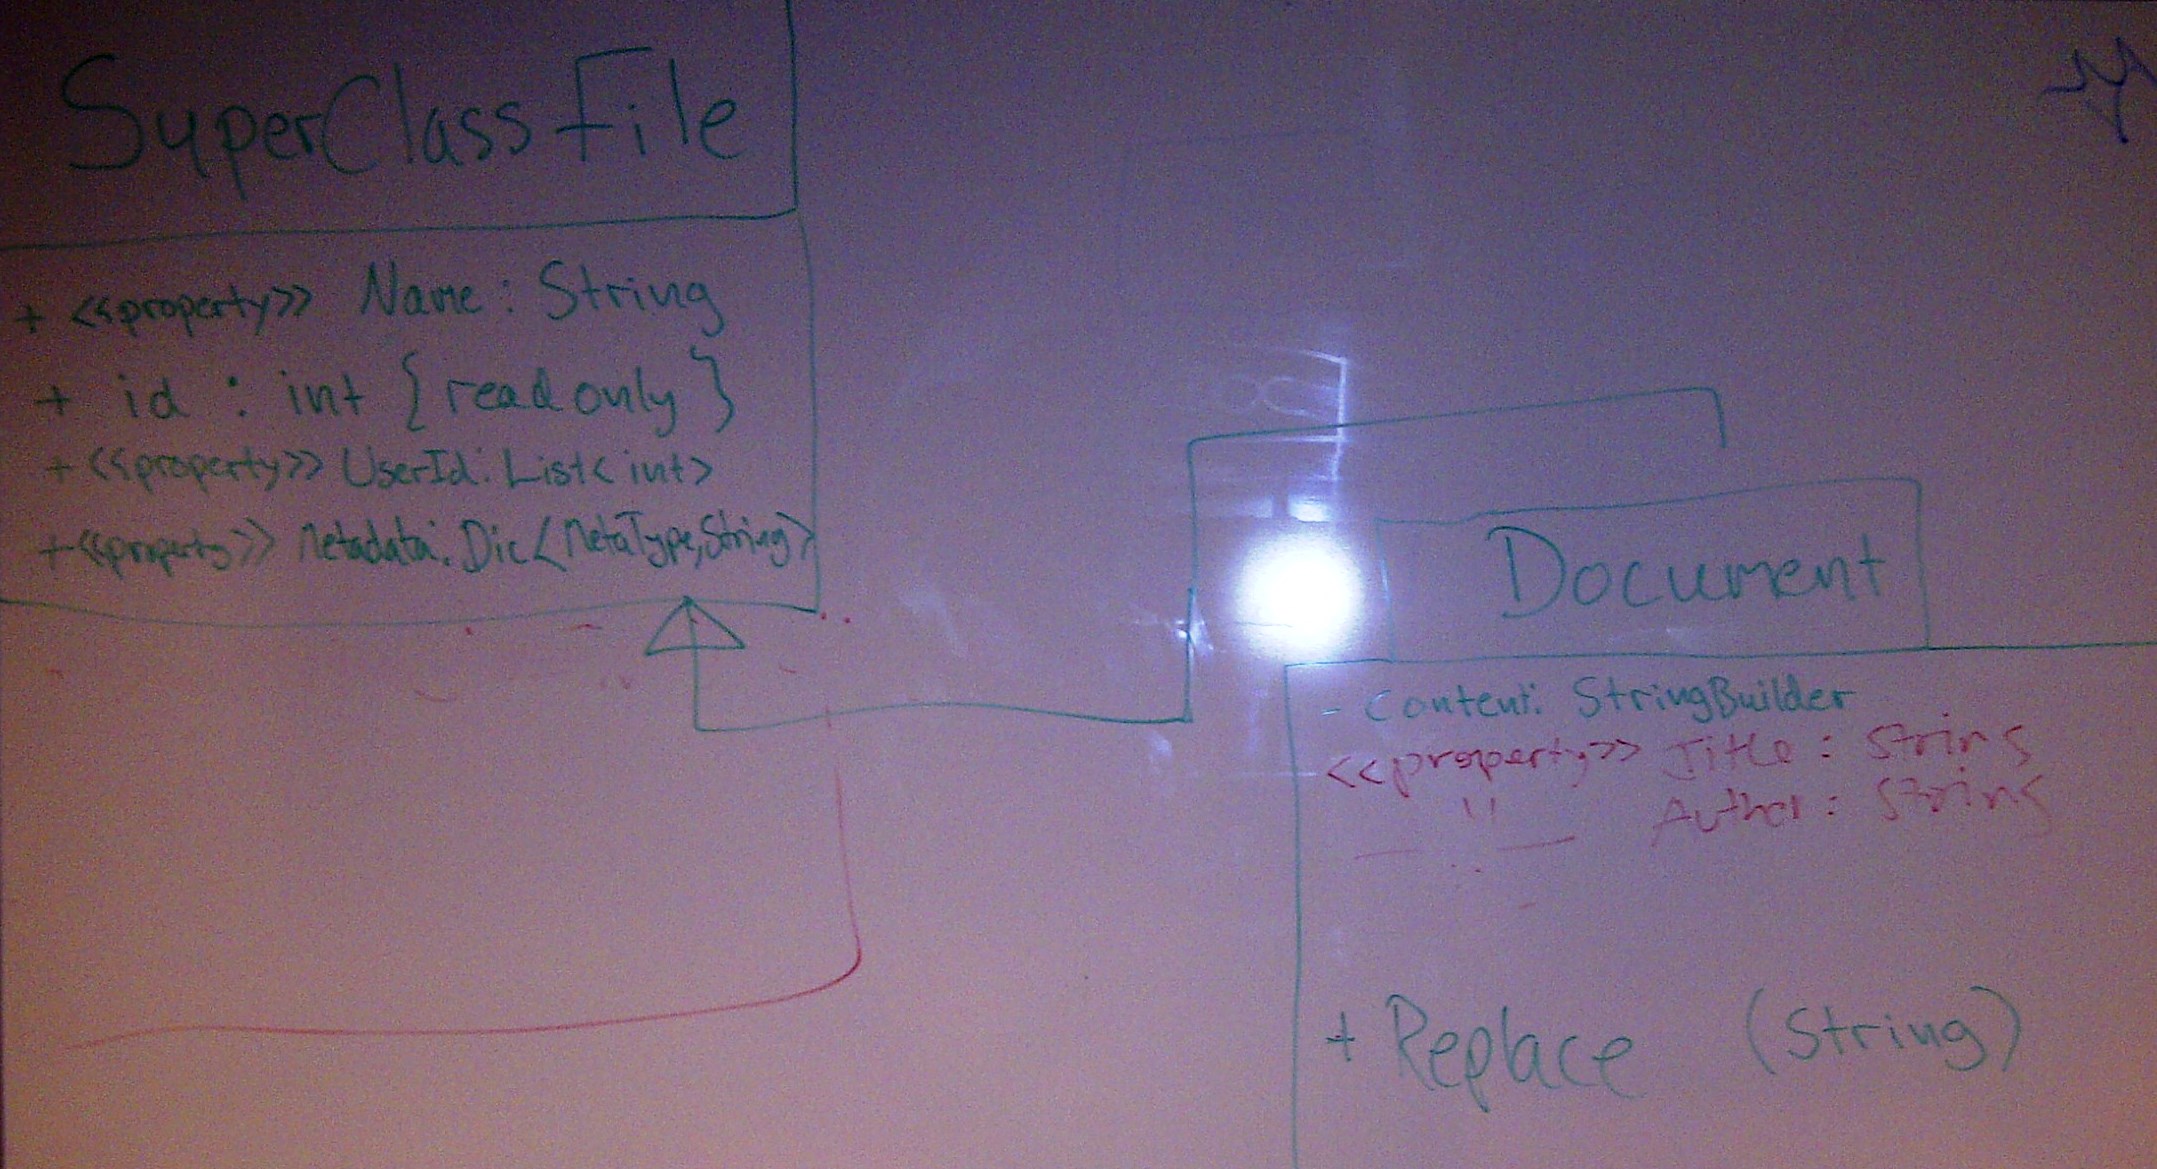 SuperClass File
+ <<property>> Name : String
+ id : int {read only}
+ <<property>> UserId : List<int>
+ <<property>> Metadata : Dic<MetaType,String>
Document
- Content: StringBuilder
<<property>> Title : String
" Author : String
+ Replace (String)